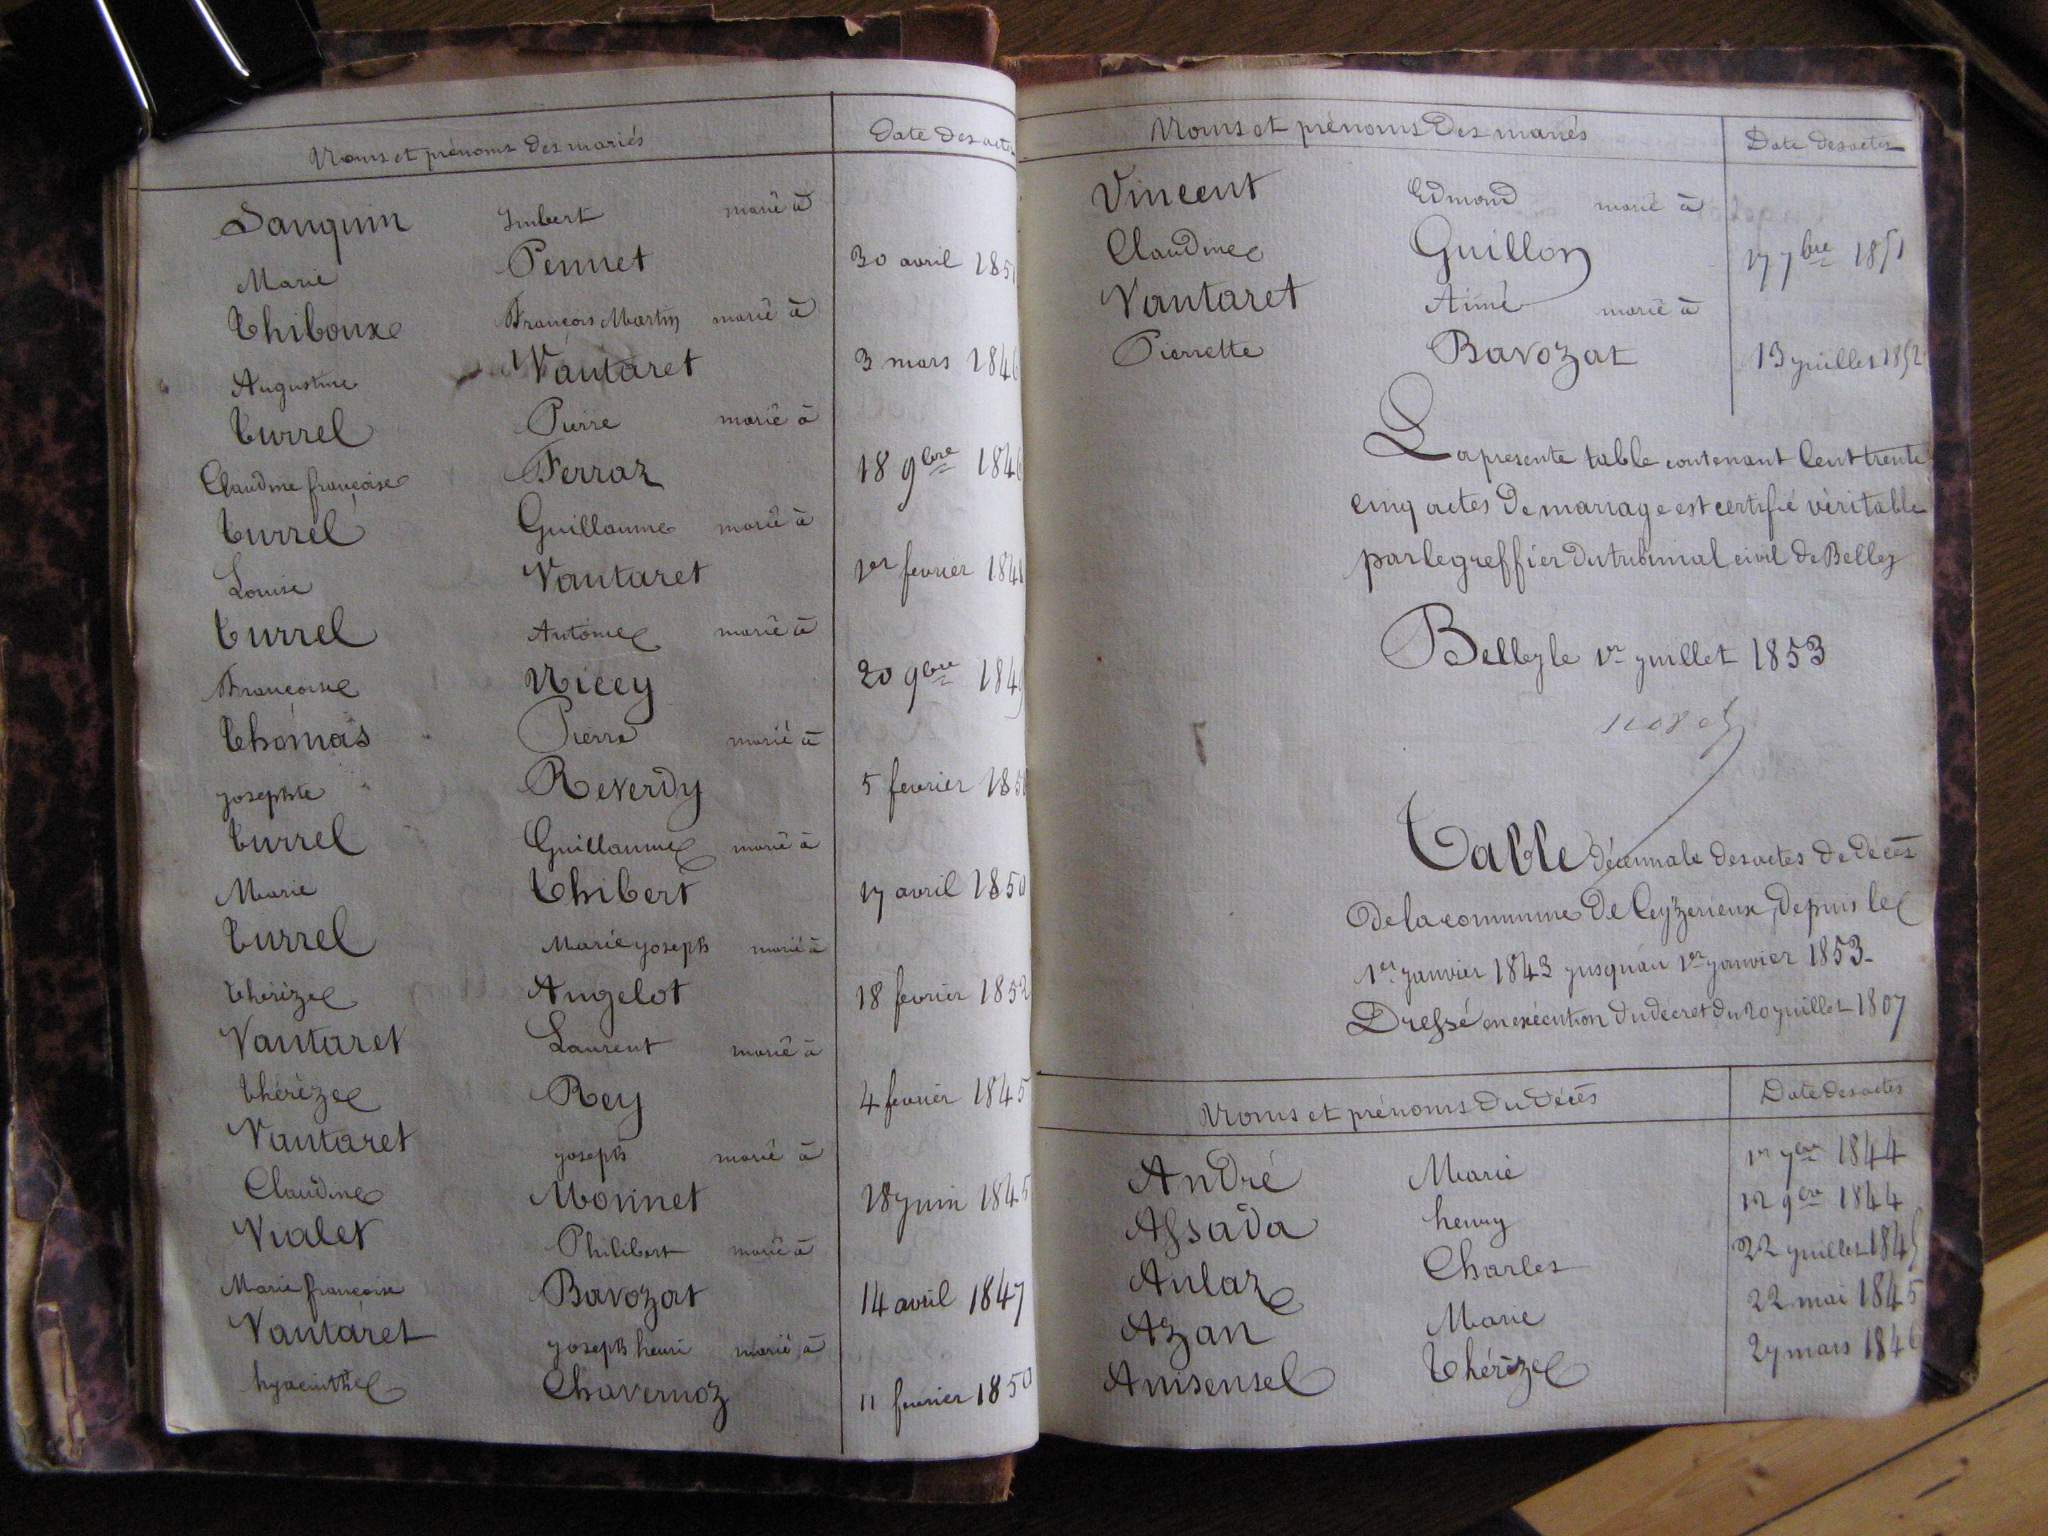 Noms et prénoms des mariés Date des actes
Sanquin Imbert marié à
Marie Pennet 30 avril 185
Thiboux François Martin marié à
Augustine Vautaret 3 mars 1846
Turrel Pierre marié à
Claudine françoise Ferraz 18 9bre 1846
Turrel Guillaume marié à
Louise Vautaret 1er fevrier 184
Turrel Antoine marié à
Françoise Nicey 20 9bre 1849
Thomas Pierre marié à
josephte Reverdy 5 fevrier 1850
Turrel Guillaume marié à
Marie Thibert 17 avril 1850
Turrel Marie joseph marié à
thérèze Angelot 18 fevrier 1852
Vautaret Laurent marié à
thérèze Rey 4 fevrier 1845
Vautaret joseph marié à
Claudine Monnet 18 juin 1845
Vialet Philibert marié à
Marie françoise Bavozat 14 avril 1847
Vautaret joseph henri marié à
hyacinthe Chavernoz 11 fevrier 1850
Noms et prénoms des mariés Date des actes
Vincent Edmond marié à
Claudine Guillon 17 7bre 1851
Vautaret Aimé marié à
Pierrette Bavozat 13 juillet 1852
La presente table contenant Cent trente
cinq actes de mariage est certifié véritable
par le greffier du tribunal civil de Belley
Belley le 1er juillet 1853
Table décennale des actes de décès
de la commune de Ceyzerieux, depuis le
1er janvier 1843 jusqu'au 1er janvier 1853.
Dressé en exécution du décret du 20 juillet 1807
Noms et prénoms du décès Date des actes
André Marie 1er 7bre 1844
Assada henry 12 9bre 1844
Aulaz Charles 22 juillet 1845
Azan Marie 22 mai 1845
Anisensel Thérèze 27 mars 1846